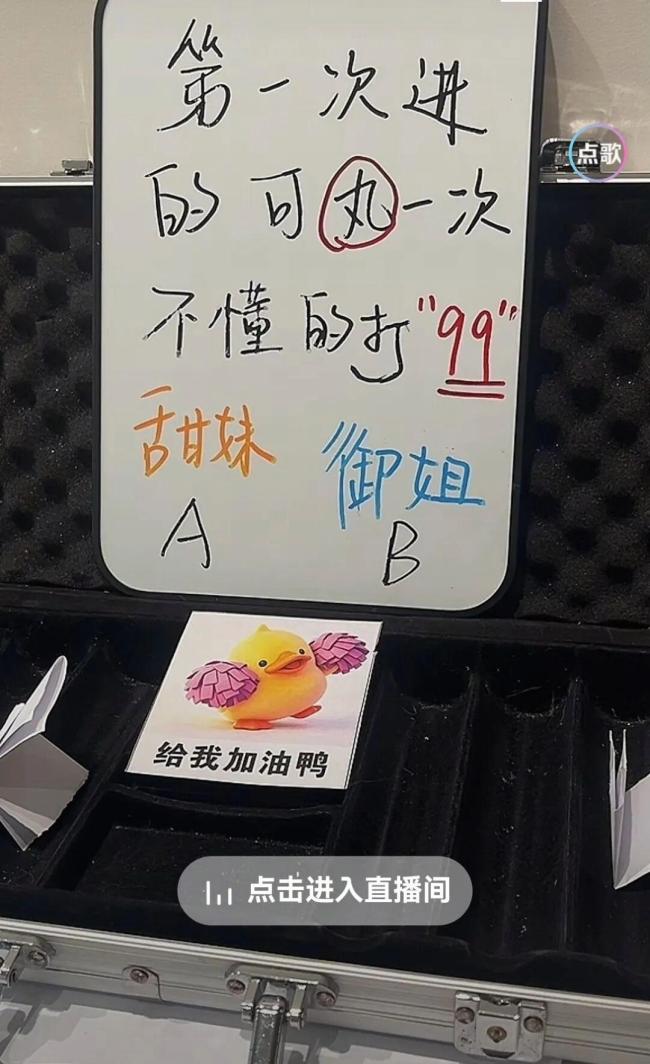 第一次进
点歌
的可丸一次
不懂的打"99"
甜妹 御姐
A B
给我加油鸭
点击进入直播间